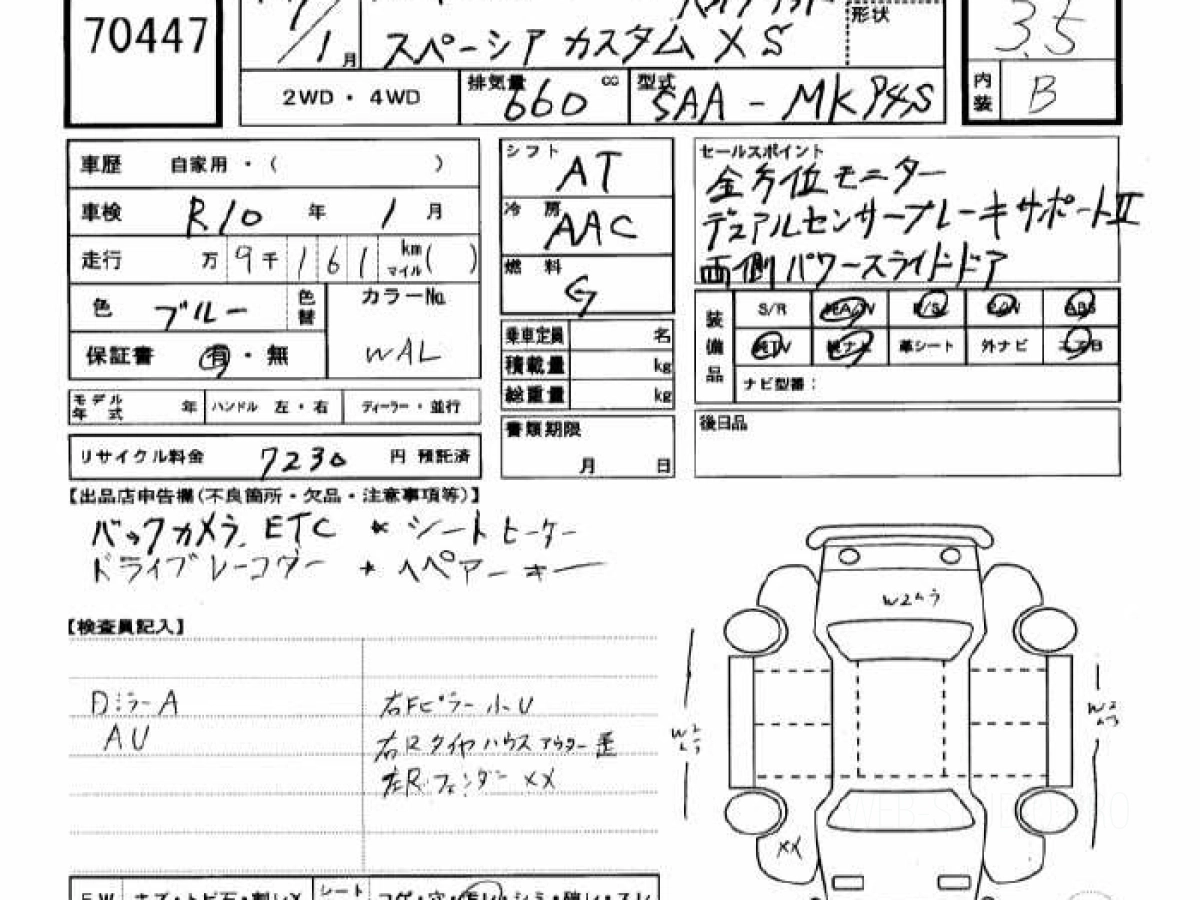 70447
1月
スペーシア カスタム XS
形状
3.5
2WD・4WD
排気量 660 cc
型式 5AA-MK94S
内装 B
車歴 自家用・( )
車検 R10 年 1 月
走行 万 9千 1 6 1 km マイル( )
色 ブルー 色替
カラーNo. WAL
保証書 有・無
モデル年式 年 ハンドル 左・右 ディーラー・並行
リサイクル料金 7230 円 預託済
シフト AT
冷房 AAC
燃料 G
乗車定員 名
積載量 kg
総重量 kg
書類期限
月 日
セールスポイント
全方位モニター
デュアルセンサーブレーキサポートⅡ
両側パワースライドドア
装備品
S/R P/S P/W ABS
純TV 純ナビ 革シート 外ナビ エアB
ナビ型番:
後日品
【出品店申告欄(不良箇所・欠品・注意事項等)】
バックカメラ ETC * シートヒーター
ドライブレコーダー *
【検査員記入】
DミラーA
AU
右Fピラー小U
右Rタイヤハウスアウター
左Rフェンダー XX
W2ムラ
W2ムラ
W2ムラ
XX
シート